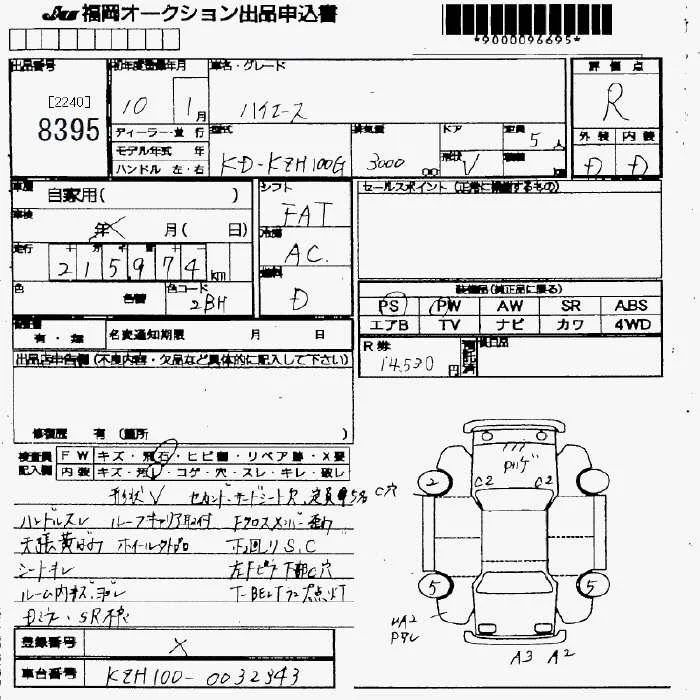 福岡オークション出品申込書
*9000096695*
出品番号
[2240]
8395
初年度登録年月
10 1月
ディーラー・並行
モデル年式 年
ハンドル 左・右
車名・グレード
ハイエース
型式
KD-KZH100G
排気量
3000
CC
ドア
形状
V
定員
5人
評価点
R
外装 内装
D D
車歴
自家用( )
車検
年 月( 日)
走行
215974km
色
色替
色コード
2BH
シフト
FAT
冷房
AC.
燃料
D
セールスポイント (正常に機能するもの)
装備品(純正品に限る)
PS PW AW SR ABS
エアB TV ナビ カワ 4WD
有・無
名変通知期限 月 日
R券
14,530円
後日品
出品店申告欄 (不良内容・欠品など具体的に記入して下さい)
修復歴 有 (箇所 )
検査員
記入欄
FW キズ・飛石・ヒビ割・リペア跡・X要
内装 キズ・汚れ・コゲ・穴・スレ・キレ・破レ
形状V セカンド、サードシート欠、定員5名
C穴
ハンドルスレ ルーフキャリア取付
ホイールキャップ
S,C
シートキレ
C穴
T-BELTランプ点灯
2 C2 C2
5 5
A3 A2
登録番号
X
車台番号
KZH100-0032343